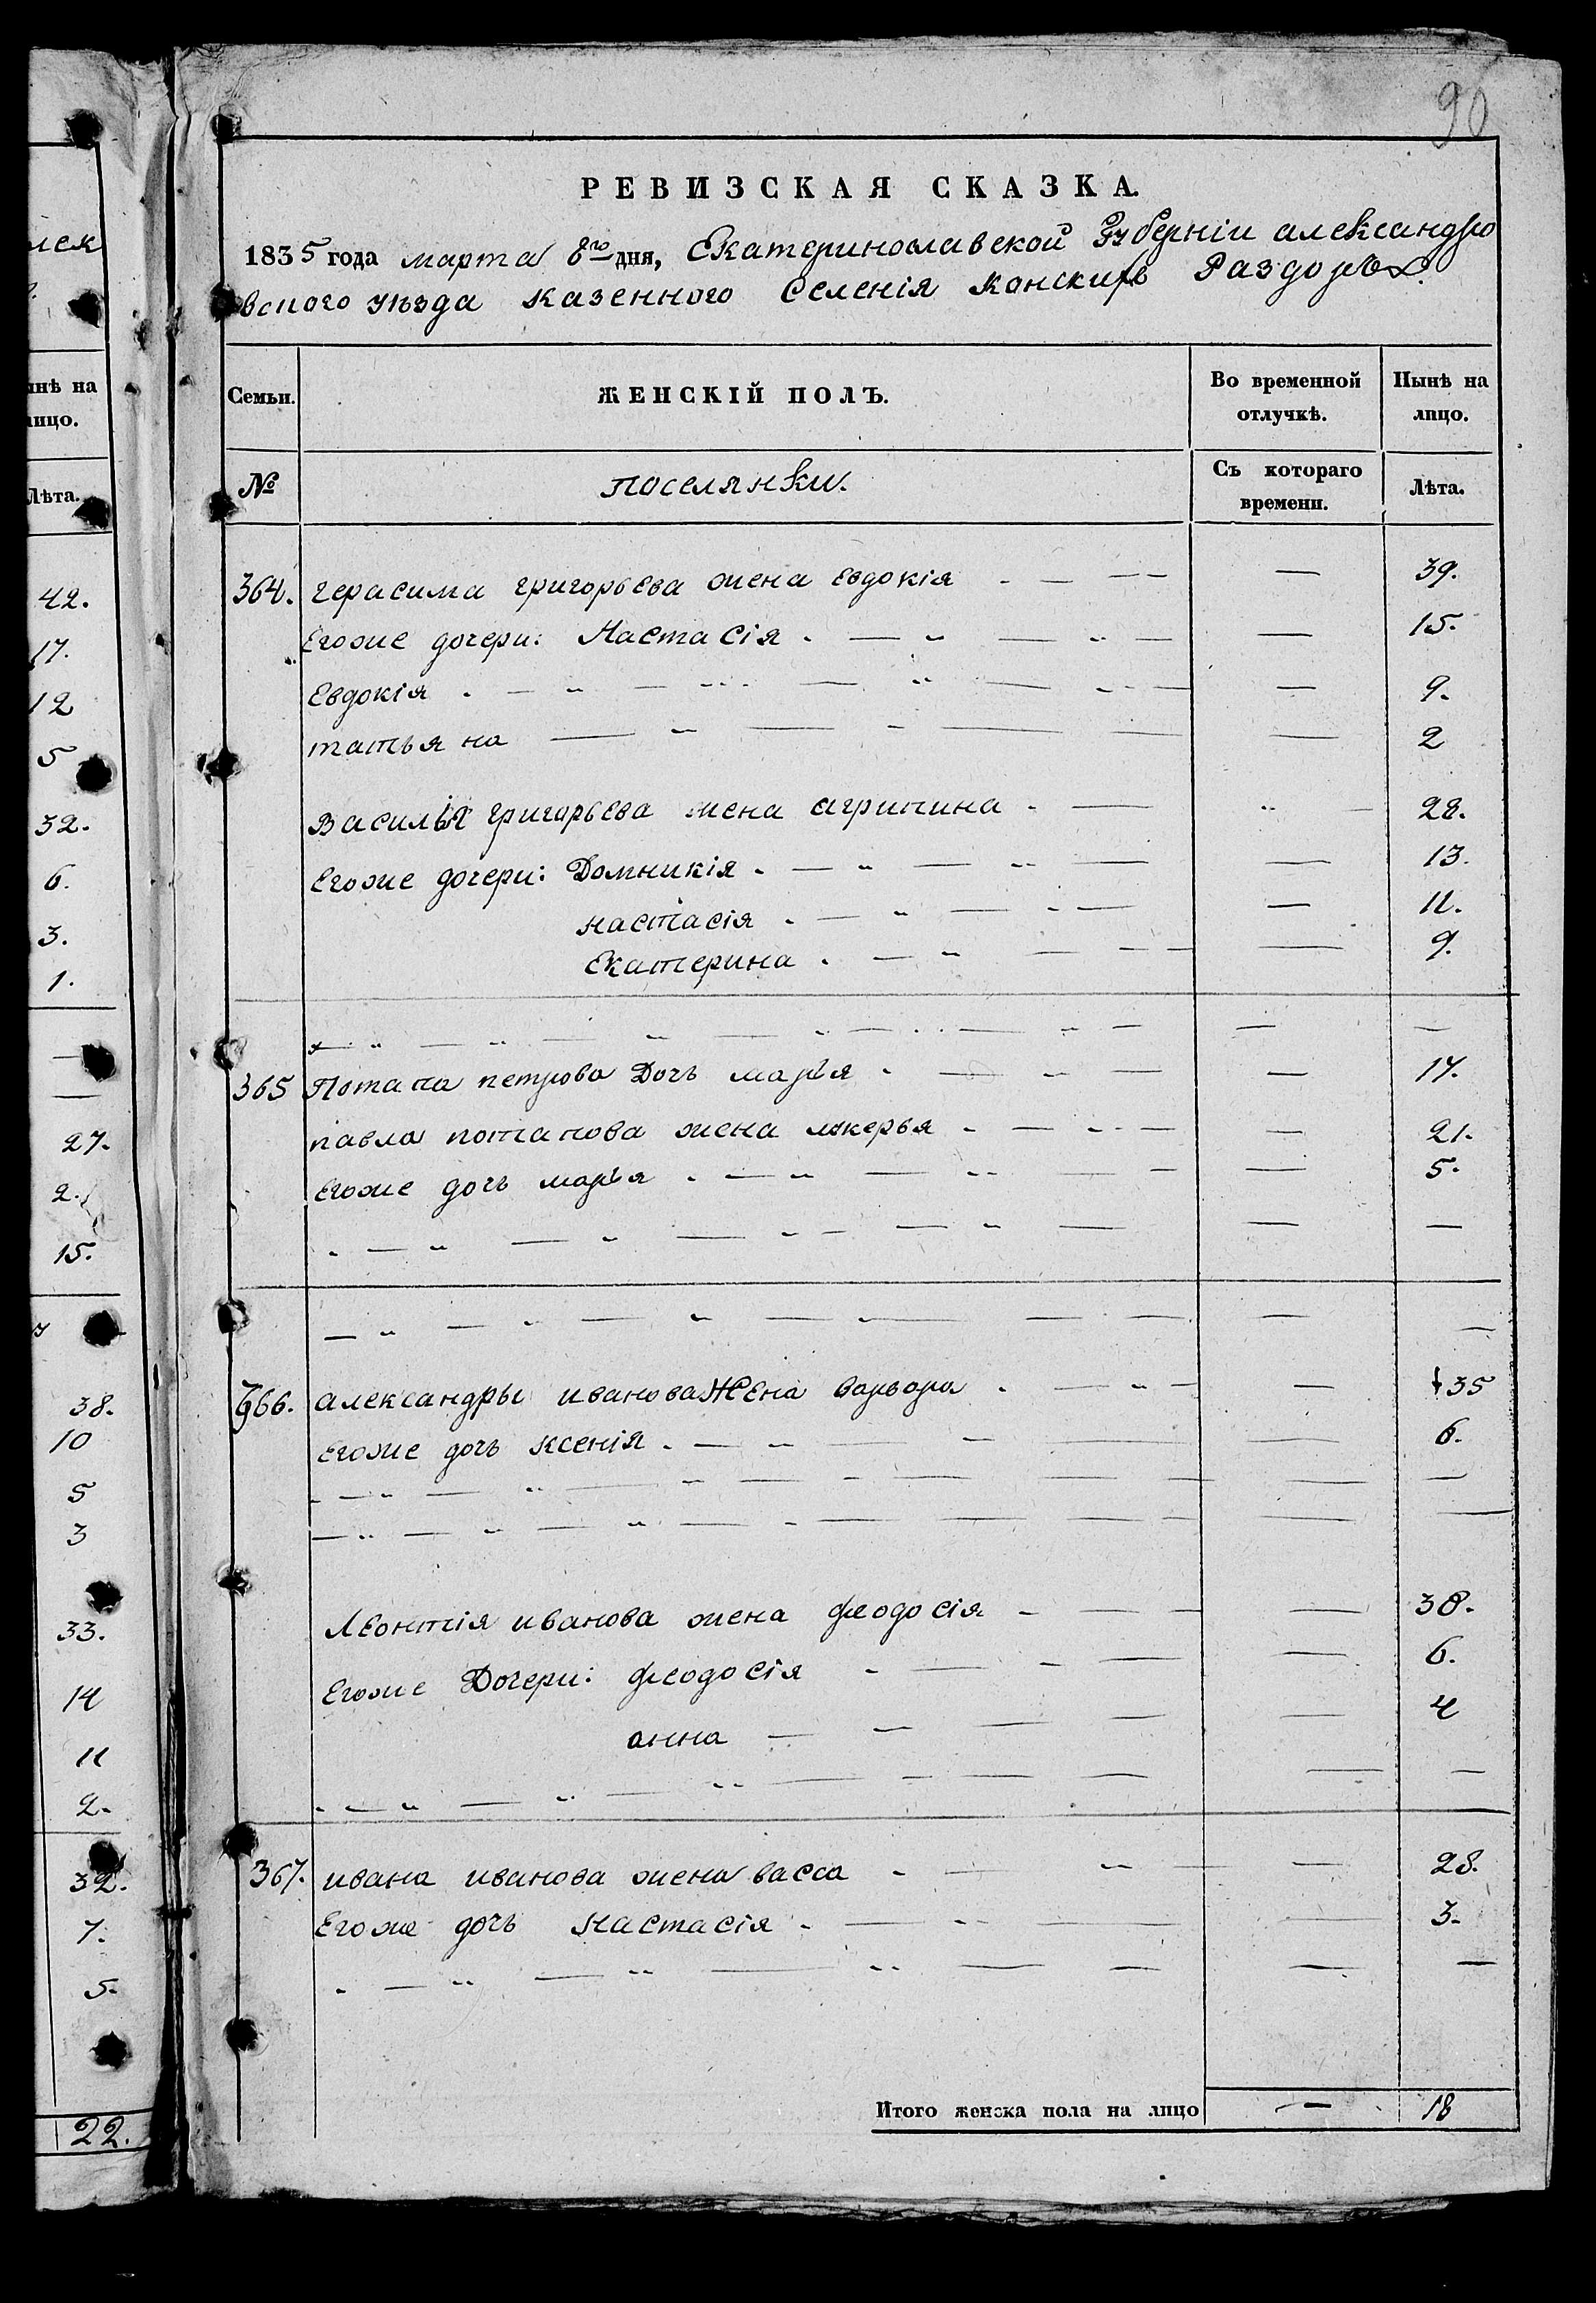 90
РЕВИЗСКАЯ СКАЗКА.
1835 года марта 8го дня, Екатеринославской Губерніи александро
вского уѣзда казенного Селенія Конскихъ Раздорѣ
Семьи. ЖЕНСКІЙ ПОЛЪ. Во временной отлучкѣ. Нынѣ на лицо.
№ поселянки. Съ котораго времени. Лѣта.
364. герасима григорьева жена Евдокія — 39.
Егоже дочери: Настасія — 15.
Евдокія — 9.
татьяна — 2
Василья григорьева жена агрипина 28.
Егоже дочери: Домникія — 13.
настасія — 11.
Екатерина — 9.
365 Потапа петрова Дочь марья — 17.
павла потапова жена лукерья — 21.
Егоже дочь марья — 5.
366. александры иванова Жена варвара — 35
Егоже дочь ксенія — 6.
Леонтія иванова жена феодосія — 38.
Егоже Дочери: феодосія — 6.
анна — 4
367. ивана иванова жена васса — 28.
Егоже дочь настасія — 3.
Итого женска пола на лицо — 18
нѣ на
лицо.
Лѣта.
42.
17.
12
5
32.
6.
3.
1.
—
—
27.
2.
15.
38.
10
5
3
33.
14
11
2.
32.
7.
5.
22.